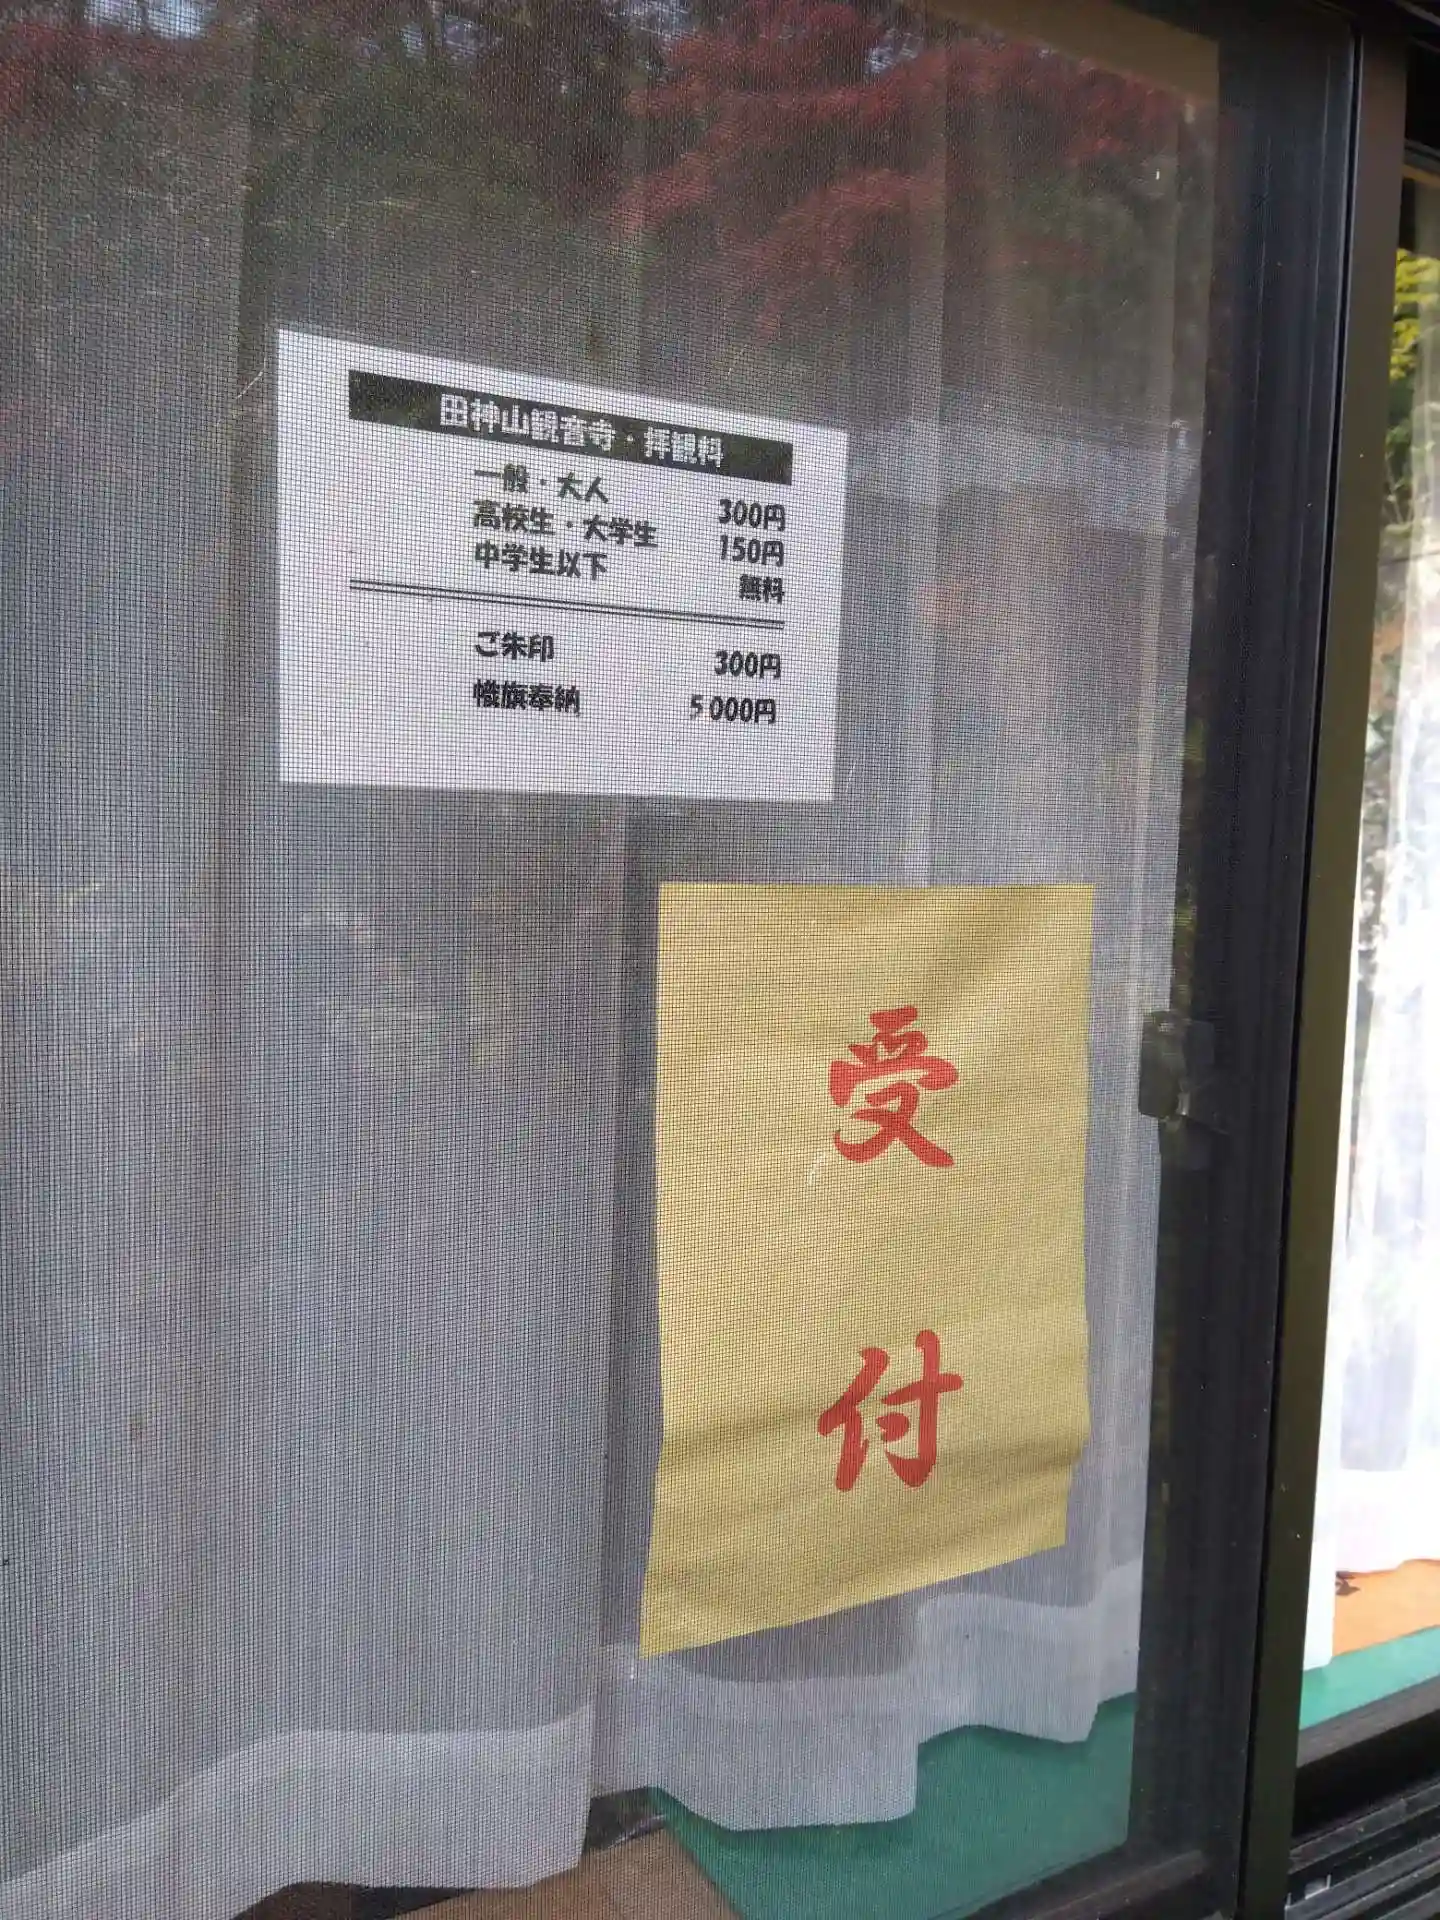 田神山観音寺・拝観料
一般・大人 300円
高校生・大学生 150円
中学生以下 無料
ご朱印 300円
幟旗奉納 5000円
受付